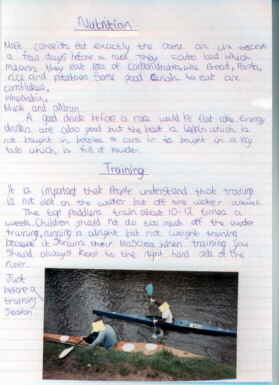 Nutrition
Most canoeists eat exactly the same as us except
a few days before a race they carbo load which
means they eat lots of carbohydrates like bread, Pasta,
rice and potatoes. Some good things to eat are
cornflakes,
Weetabix,
Muesli and Alpen.
A good drink before a race would be flat coke. Energy
drinks are also good but the best is which is
not bought in bottles or cans it is bought in a big
tub which is full of powder.
Training
It is important that people understand that training
is not just on the water but off the water aswell.
The top paddlers train about 10-12 times a
week. Children should not do too much off the water
training, running is alright but not weight training
because it strains their muscles. When training you
should always keep to the right hand side of the
river.
Just
before a
training
session